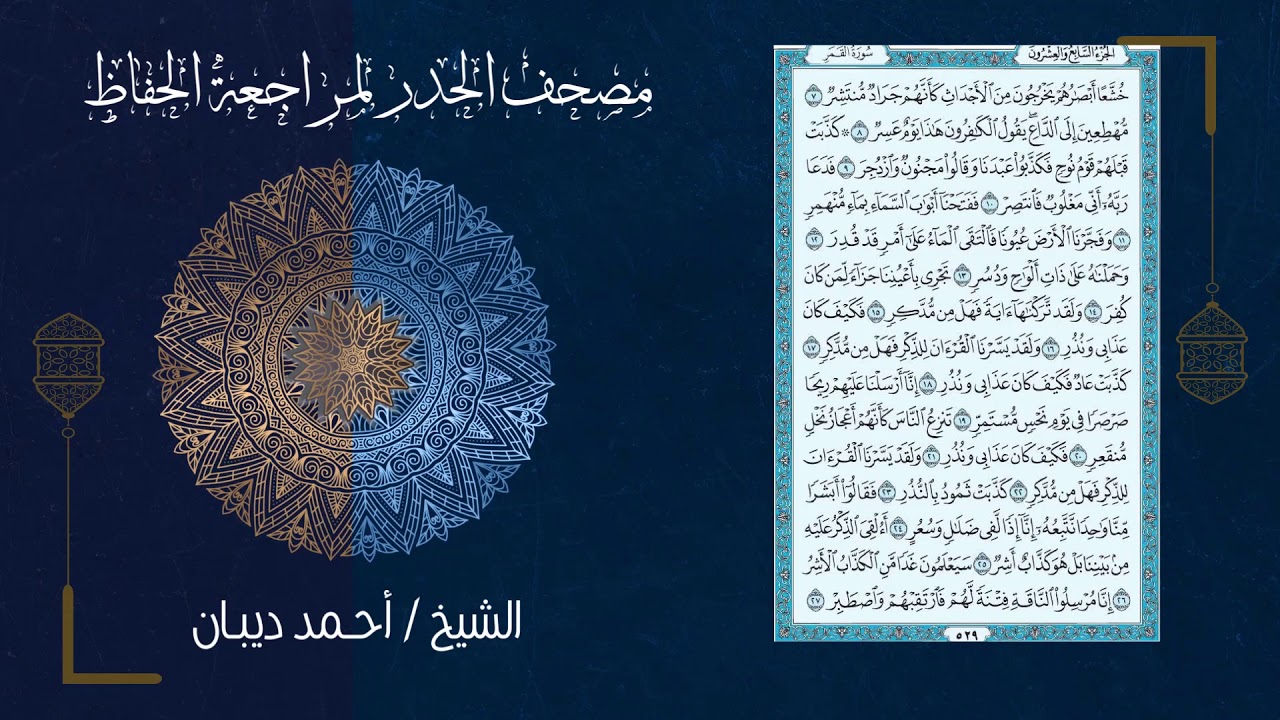 مصحف الحدر لمراجعة الحفاظ
الشيخ / أحمد ديبان
الجزء السابع والعشرون
سورة القمر
خُشَّعًا أَبْصَٰرُهُمْ يَخْرُجُونَ مِنَ ٱلْأَجْدَاثِ كَأَنَّهُمْ جَرَادٌ مُّنتَشِرٌ ٧
مُّهْطِعِينَ إِلَى ٱلدَّاعِ ۖ يَقُولُ ٱلْكَٰفِرُونَ هَٰذَا يَوْمٌ عَسِرٌ ٨ ۞ كَذَّبَتْ
قَبْلَهُمْ قَوْمُ نُوحٍ فَكَذَّبُوا۟ عَبْدَنَا وَقَالُوا۟ مَجْنُونٌ وَٱزْدُجِرَ ٩ فَدَعَا
رَبَّهُۥٓ أَنِّى مَغْلُوبٌ فَٱنتَصِرْ ١٠ فَفَتَحْنَآ أَبْوَٰبَ ٱلسَّمَآءِ بِمَآءٍ مُّنْهَمِرٍ
١١ وَفَجَّرْنَا ٱلْأَرْضَ عُيُونًا فَٱلْتَقَى ٱلْمَآءُ عَلَىٰٓ أَمْرٍ قَدْ قُدِرَ ١٢
وَحَمَلْنَٰهُ عَلَىٰ ذَاتِ أَلْوَٰحٍ وَدُسُرٍ ١٣ تَجْرِى بِأَعْيُنِنَا جَزَآءً لِّمَن كَانَ
كُفِرَ ١٤ وَلَقَد تَّرَكْنَٰهَآ ءَايَةً فَهَلْ مِن مُّدَّكِرٍ ١٥ فَكَيْفَ كَانَ
عَذَابِى وَنُذُرِ ١٦ وَلَقَدْ يَسَّرْنَا ٱلْقُرْءَانَ لِلذِّكْرِ فَهَلْ مِن مُّدَّكِرٍ ١٧
كَذَّبَتْ عَادٌ فَكَيْفَ كَانَ عَذَابِى وَنُذُرِ ١٨ إِنَّآ أَرْسَلْنَا عَلَيْهِمْ رِيحًا
صَرْصَرًا فِى يَوْمِ نَحْسٍ مُّسْتَمِرٍّ ١٩ تَنزِعُ ٱلنَّاسَ كَأَنَّهُمْ أَعْجَازُ نَخْلٍ
مُّنقَعِرٍ ٢٠ فَكَيْفَ كَانَ عَذَابِى وَنُذُرِ ٢١ وَلَقَدْ يَسَّرْنَا ٱلْقُرْءَانَ
لِلذِّكْرِ فَهَلْ مِن مُّدَّكِرٍ ٢٢ كَذَّبَتْ ثَمُودُ بِٱلنُّذُرِ ٢٣ فَقَالُوٓا۟ أَبَشَرًا
مِّنَّا وَٰحِدًا نَّتَّبِعُهُۥٓ إِنَّآ إِذًا لَّفِى ضَلَٰلٍ وَسُعُرٍ ٢٤ أَءُلْقِىَ ٱلذِّكْرُ عَلَيْهِ
مِنۢ بَيْنِنَا بَلْ هُوَ كَذَّابٌ أَشِرٌ ٢٥ سَيَعْلَمُونَ غَدًا مَّنِ ٱلْكَذَّابُ ٱلْأَشِرُ
٢٦ إِنَّا مُرْسِلُوا۟ ٱلنَّاقَةِ فِتْنَةً لَّهُمْ فَٱرْتَقِبْهُمْ وَٱصْطَبِرْ ٢٧
٥٢٩